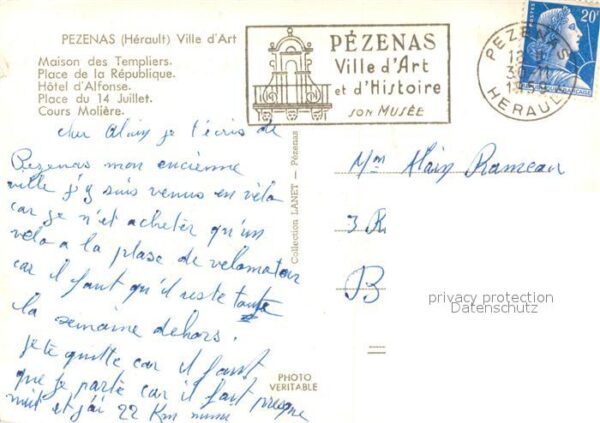 PEZENAS (Hérault) Ville d'Art
Maison des Templiers.
Place de la République.
Hôtel d'Alfonse.
Place du 14 Juillet.
Cours Molière.
cher Alain je t'écris de
Pezenas mon ancienne
ville j'y suis venus en vélo
car je n'et acheter qu'un
vélo a la plase de velomoteur
car il faut qu'il reste toute
la semaine dehors.
je te quitte car il faut
que je parte car il fait presque
nuit et j'ai 22 Km
PHOTO
VERITABLE
Collection LANET - Pézenas
PÉZENAS
Ville d'Art
et d'Histoire
SON MUSÉE
PEZENAS
30-11
1959
HERAULT
20F
Alain Rameau
3 R
B
privacy protection
Datenschutz